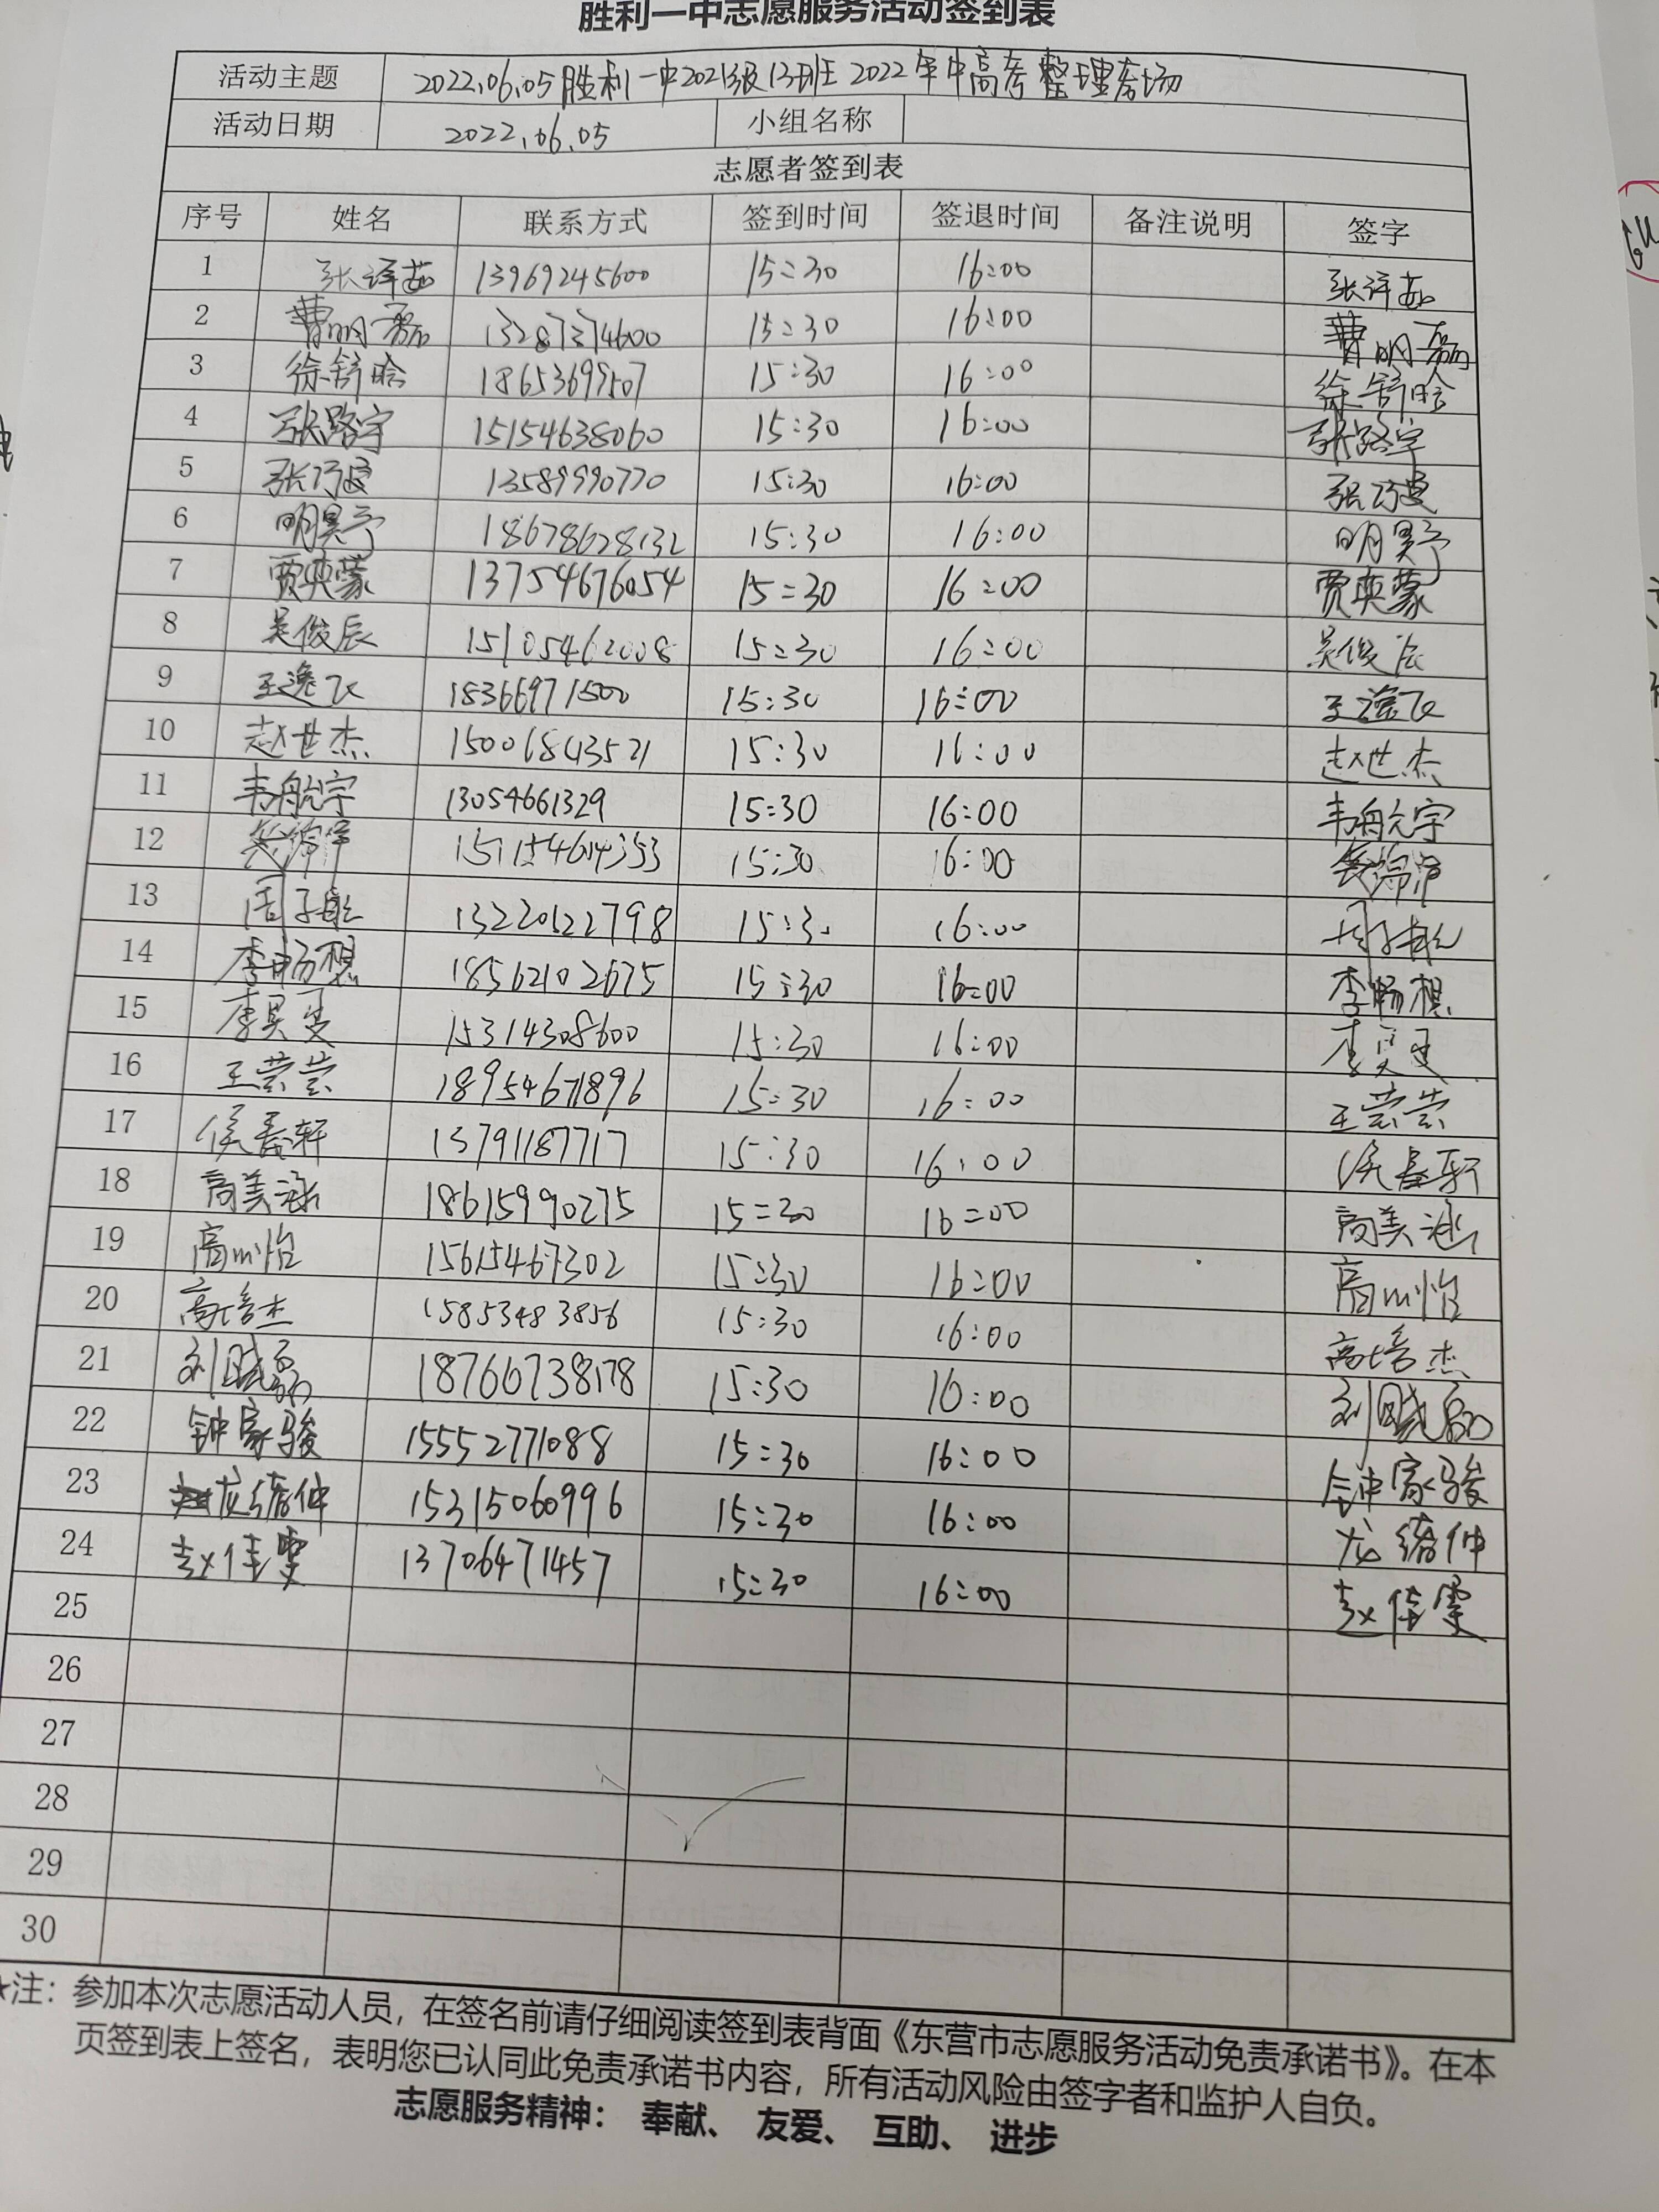 胜利一中志愿服务活动签到表
活动主题 2022.06.05胜利一中2021级13班2022年中高考整理考场
活动日期 2022.06.05 小组名称
志愿者签到表
序号 姓名 联系方式 签到时间 签退时间 备注说明 签字
1 张译茹 13969245600 15:30 16:00 张译茹
2 曹明磊 13287374600 15:30 16:00 曹明磊
3 徐舒晗 18653699507 15:30 16:00 徐舒晗
4 张路宇 15154638060 15:30 16:00 张路宇
5 13589990770 15:30 16:00
6 明昊予 18678628132 15:30 16:00 明昊予
7 贾奕蒙 13754676054 15:30 16:00 贾奕蒙
8 吴俊辰 15105462008 15:30 16:00 吴俊辰
9 王逸飞 18366971500 15:30 16:00 王逸飞
10 赵世杰 15006843521 15:30 16:00 赵世杰
11 韦航宇 13054661329 15:30 16:00 韦航宇
12 15:30 16:00
13 周子航 13220522798 15:30 16:00 周子航
14 李畅想 18562102675 15:30 16:00 李畅想
15 李昊旻 15314308600 15:30 16:00 李昊旻
16 王芸芸 18954671896 15:30 16:00 王芸芸
17 13791187717 15:30 16:00
18 高美涵 18615990275 15:30 16:00 高美涵
19 高川怡 15615467302 15:30 16:00 高川怡
20 高培杰 15853483856 15:30 16:00 高培杰
21 18766738178 15:30 16:00
22 钟家骏 15552771088 15:30 16:00 钟家骏
23 15315060996 15:30 16:00
24 赵佳雯 13706471457 15:30 16:00 赵佳雯
25
26
27
28
29
30
★注：参加本次志愿活动人员，在签名前请仔细阅读签到表背面《东营市志愿服务活动免责承诺书》。在本
页签到表上签名，表明您已认同此免责承诺书内容，所有活动风险由签字者和监护人自负。
志愿服务精神： 奉献、 友爱、 互助、 进步